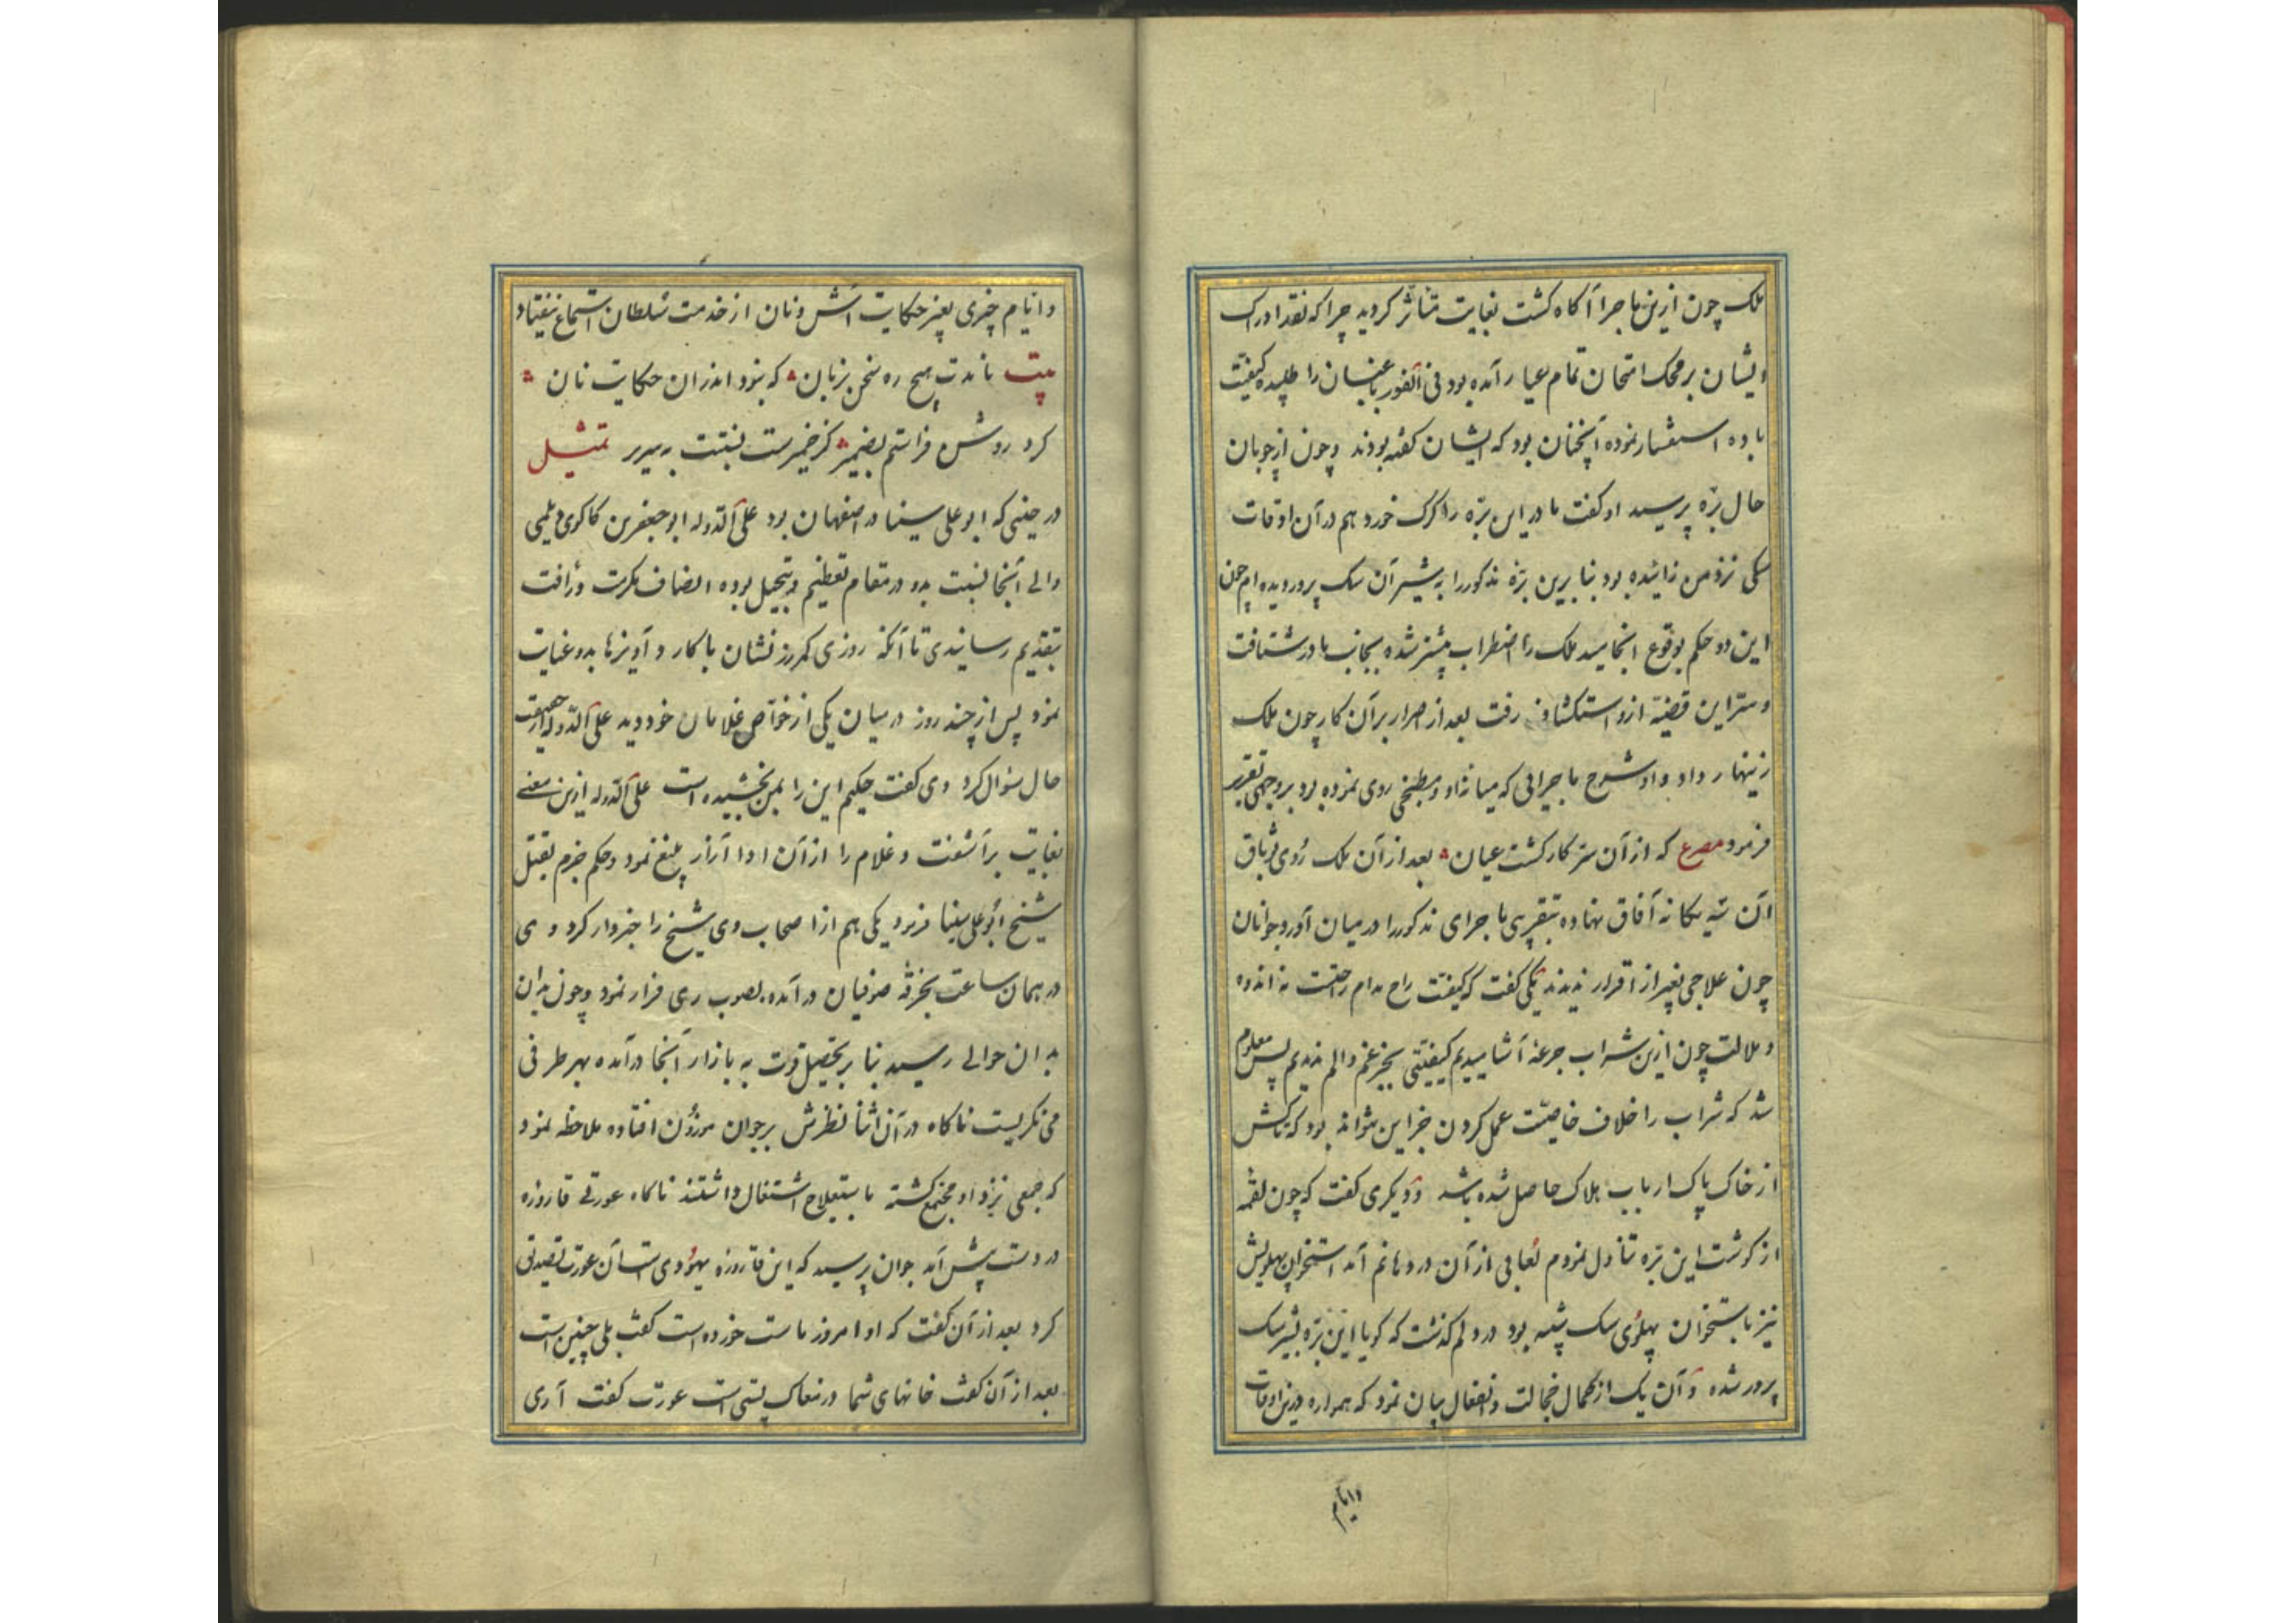 ملک چون ازین ماجرا آکاه کشت بغایت متأثر کردید چرا که نقد ادراک
ایشان بر محک امتحان تمام عیار آمده بود فی الفور باغبان را طلبیده کیفیت
باده استفسار نموده آنچنان بود که ایشان کفته بودند و چون از چوبان
حال بره پرسید او کفت مادر این بره را کرک خورد هم در آن اوقات
سکی نزد من زائیده بود بنابرین بره مذکور را به شیر آن سک پروریده ام چون
این دو حکم بوقوع انجامید ملک را اضطراب بیشتر شده بجانب مادر شتافت
و سر این قضیه ازو استکشاف رفت بعد از اصرار بر آن کار چون ملک
زینهار داد او شرح ماجرائی که میانه او و مطبخی روی نموده بود بر وجهی تقریر
فرمود مصرع که از آن سر کار کشت عیان بعد از آن ملک روی بوثاق
آن سه یکانه آفاق نهاده بتقریبی ماجرای مذکور را در میان آورد جوانان
چون علاجی بغیر از اقرار ندیدند یکی کفت که کیفیت راح مدام راحتست نه اندوه
و ملالت چون ازین شراب جرعه آشامیدیم کیفیتی بجز غم و الم ندیدیم پس معلوم
شد که شراب را خلاف خاصیت عمل کردن جز این نتواند بود که تاکش
از خاک پاک ارباب هلاک حاصل شده باشد و دیکری کفت که چون لقمه
از کوشت این بره تناول نمودم لعابی از آن در دهانم آمد استخوان پهلویش
نیز باستخوان پهلوی سک شبیه بود در دلم کذشت که کویا این بره بشیر سک
پرور شده و آن یک از کمال خجالت و انفعال بیان نمود که همواره درین اوقات
وایام
وایام چیزی بغیر حکایت آش و نان از خدمت سلطان استماع نیفتاد
بیت ماندت هیچ ره سخن بزبان که بود اندران حکایت نان
کرد روشن فراستم بضمیر کز خمیرست نسبتت به سریر تمثیل
در حینی که ابوعلی سینا در اصفهان بود علاء الدوله ابو جعفر بن کاکوی دیلمی
والی آنجا نسبت بدو در مقام تعظیم و تبجیل بوده انصاف مکرمت و رأفت
بتقدیم رسانیدی تا آنکه روزی کمر زرنشان با کارد و آویزها بدو عنایت
نمود پس از چند روز در میان یکی از خواص غلامان خود دید علاء الدوله از حقیقت
حال سؤال کرد وی کفت حکیم این را بمن بخشیده است علاء الدوله ازین معنی
بغایت برآشفت و غلام را از آن ادا آزار بلیغ نمود و حکم جزم بقتل
شیخ ابو علی سینا فرمود یکی هم از اصحاب وی شیخ را خبردار کرد و وی
در همان ساعت بخرقه صوفیان در آمده بصوب ری فرار نمود و چون بدان
بدان حوالی رسید بنا بر تحصیل قوت به بازار آنجا درآمده بهر طرفی
می نکریست ناکاه در آن اثنا نظرش بر جوان موزون افتاده ملاحظه نمود
که جمعی نزد او مجتمع کشته باستعلاج اشتغال داشتند ناکاه عورتی قاروره
در دست پیش آمد جوان پرسید که این قاروره یهودی است آن عورت تصدیق
کرد بعد از آن کفت که او امروز ماست خورده است کفت بلی چنین است
بعد از آن کفت خانهای شما در مغاک پستی است عورت کفت آری